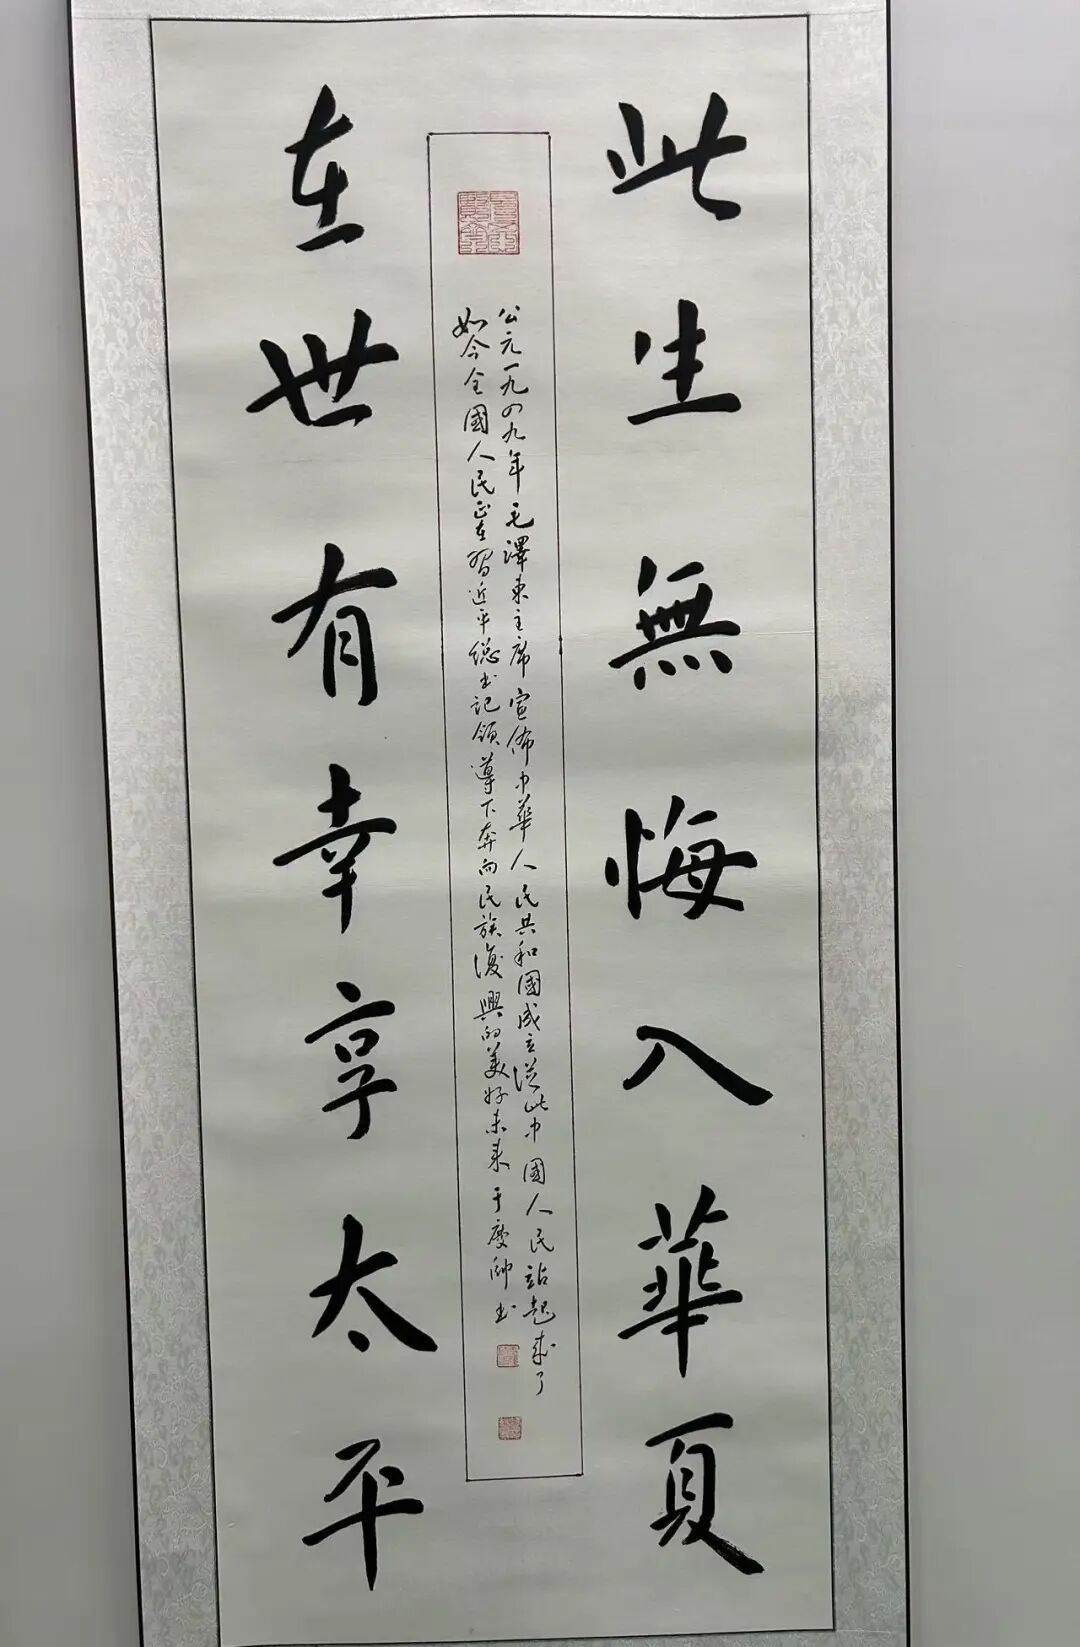 此生無悔入華夏
公元一九四九年毛澤東主席宣佈中華人民共和國成立從此中國人民站起來了
如今全國人民正在習近平總书記領導下奔向民族復興的美好未来于慶帥书
在世有幸享太平